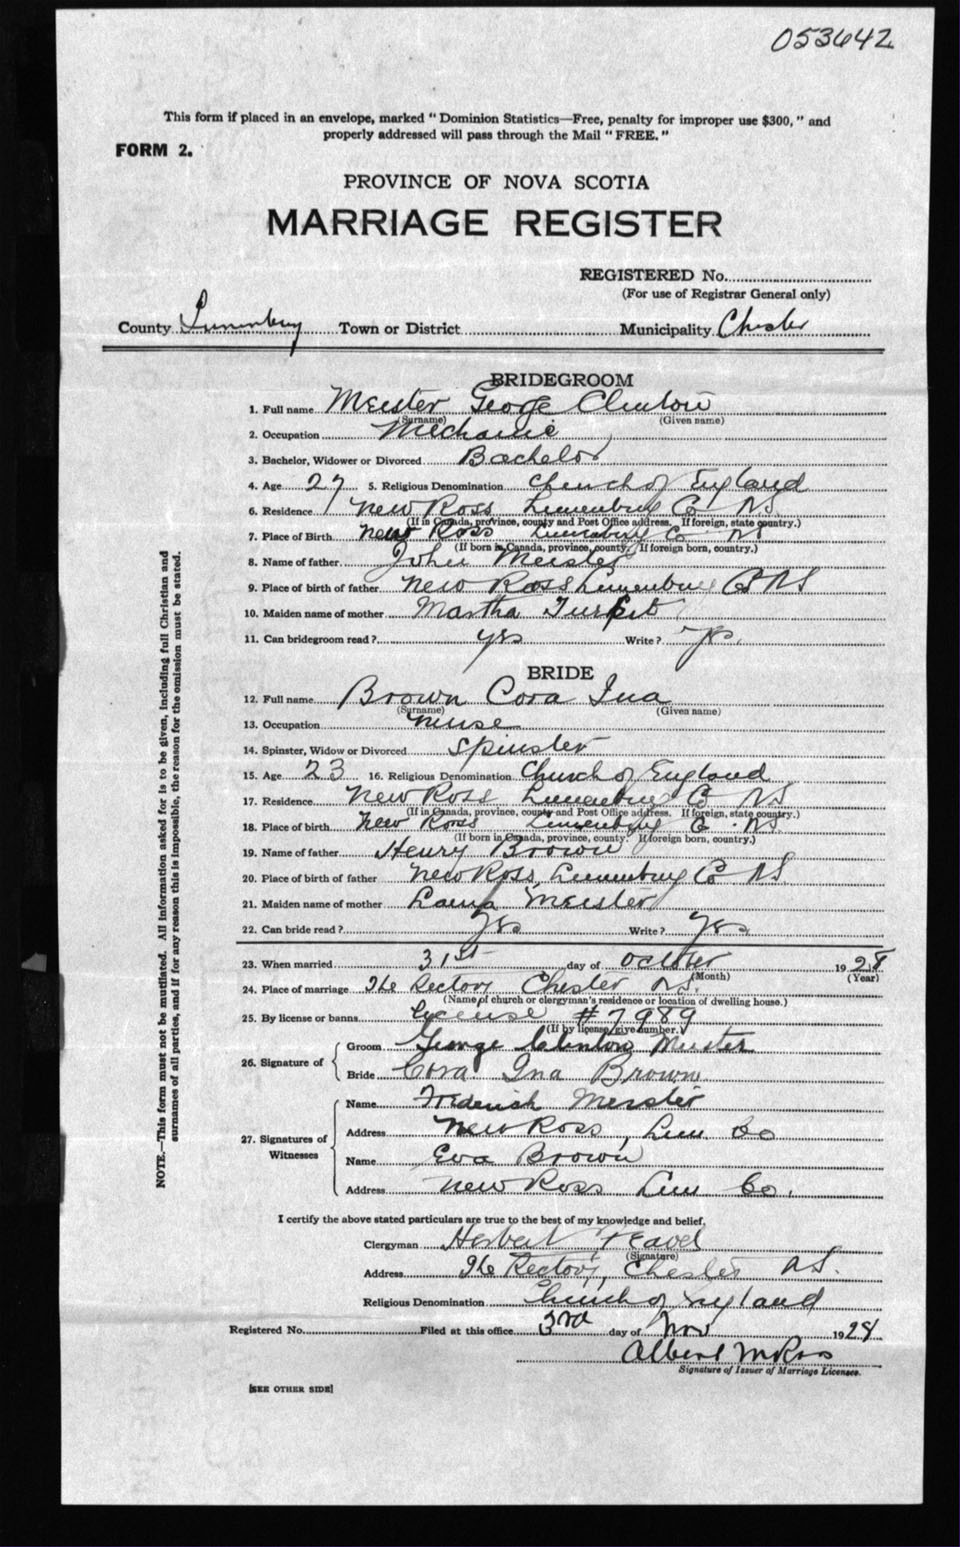 053642
This form if placed in an envelope, marked "Dominion Statistics—Free, penalty for improper use $300," and
properly addressed will pass through the Mail "FREE."
FORM 2.
PROVINCE OF NOVA SCOTIA
MARRIAGE REGISTER
REGISTERED No.
(For use of Registrar General only)
County Lunenburg Town or District Municipality Chester
BRIDEGROOM
1. Full name Meister George Clinton
(Surname) (Given name)
2. Occupation Mechanic
3. Bachelor, Widower or Divorced Bachelor
4. Age 27 5. Religious Denomination Church of England
6. Residence New Ross Lunenburg Co NS
(If in Canada, province, county and Post Office address. If foreign, state country.)
7. Place of Birth New Ross Lunenburg Co NS
(If born in Canada, province, county. If foreign born, country.)
8. Name of father John Meister
9. Place of birth of father New Ross Lunenburg Co NS
10. Maiden name of mother Martha
11. Can bridegroom read? yes Write? yes.
BRIDE
12. Full name Brown Cora Ina
(Surname) (Given name)
13. Occupation nurse
14. Spinster, Widow or Divorced Spinster
15. Age 23 16. Religious Denomination Church of England
17. Residence New Ross Lunenburg Co NS
(If in Canada, province, county and Post Office address. If foreign, state country.)
18. Place of birth New Ross Lunenburg Co. NS.
(If born in Canada, province, county. If foreign born, country.)
19. Name of father Henry Brown
20. Place of birth of father New Ross, Lunenburg Co NS.
21. Maiden name of mother Meister
22. Can bride read? Yes Write? Yes.
23. When married 31st day of October 1928
(Month) (Year)
24. Place of marriage The Rectory Chester NS.
(Name of church or clergyman's residence or location of dwelling house.)
25. By license or banns License #7989
(If by license, give number.)
26. Signature of Groom George Clinton Meister
Bride Cora Ina Brown
27. Signatures of Witnesses Name Frederick Meister
Address New Ross, Lun. Co
Name Eva Brown
Address New Ross Lun Co.
I certify the above stated particulars are true to the best of my knowledge and belief.
Clergyman Herbert
(Signature)
Address The Rectory, Chester NS.
Religious Denomination Church of England
Registered No. Filed at this office 3rd day of Nov 1928
Albert
Signature of Issuer of Marriage Licenses.
[SEE OTHER SIDE]
NOTE.—This form must not be mutilated. All information asked for is to be given, including full Christian and
surnames of all parties, and if for any reason this is impossible, the reason for the omission must be stated.